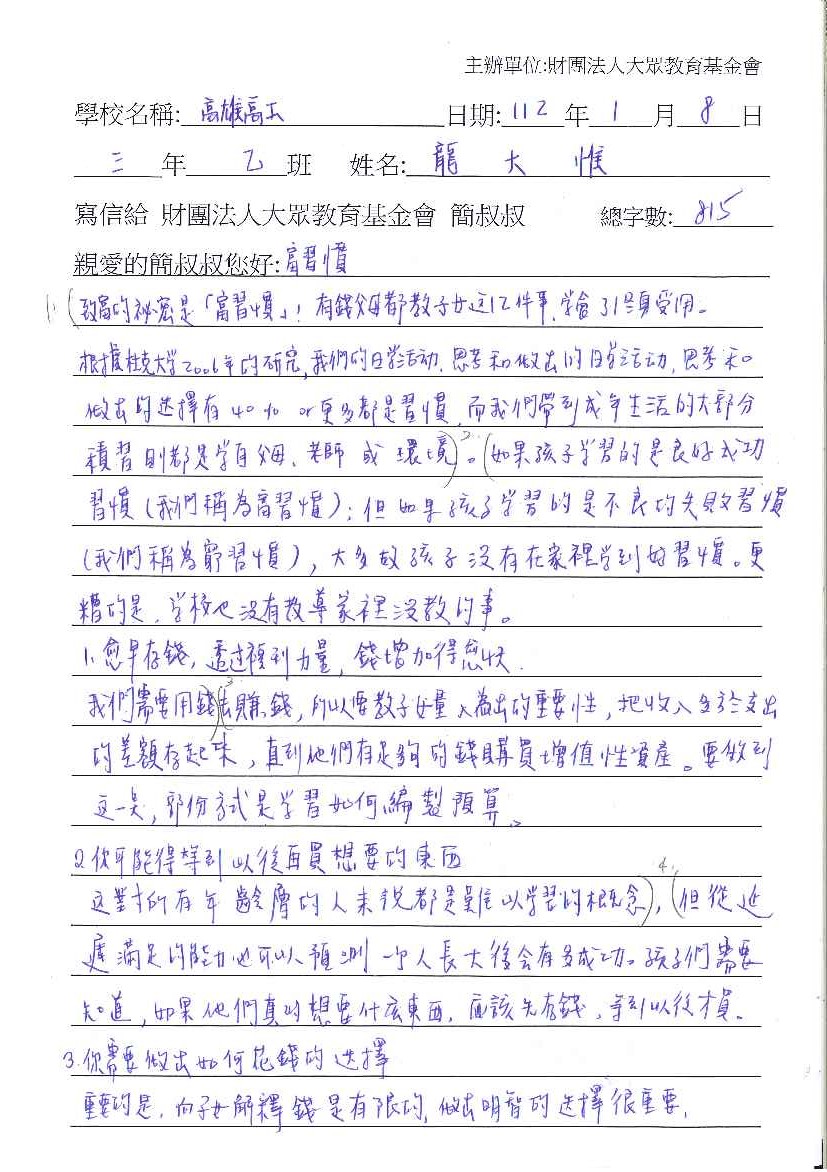 主辦單位:財團法人大眾教育基金會
學校名稱: 高雄高工 日期: 112 年 1 月 8 日
三 年 乙 班 姓名: 龍 大 惟
寫信給 財團法人大眾教育基金會 簡叔叔 總字數: 815
親愛的簡叔叔您好: 富習慣
1. (致富的祕密是「富習慣」! 有錢父母都教子女這12件事,學會了終身受用。
根據杜克大學2006年的研究,我們的日常活动.思考和做出的日常活动,思考和
做出的选择有40% or更多都是習慣,而我們帶到成年生活的大部分
積習則都是学自父母、老師 或 環境) 2. 。(如果孩子学習的是良好成功
習慣(我們稱為富習慣);但如果孩子学習的是不良的失敗習慣
(我們稱為窮習慣),大多故孩子沒有在家裡学到好習慣。更
糟的是,学校也沒有教導家裡沒教的事。
1.愈早存錢,透过複利力量,錢增加得愈快.
我們需要用錢)3.(去賺錢,所以要教子女量入為出的重要性,把收入多於支出
的差額存起來,直到他們存足夠的錢購買增值性資產。要做到
这一点,部份方式是学習如何編製預算。
2.你可能得等到以後再買想要的東西
这對於所有年齡層的人來說都是難以学習的概念),4.(但從延
遲滿足的能力也可以預測一个人長大後会有多成功。孩子們需要
知道,如果他們真的想要什么東西,應該先存錢,等到以後才買。
3.你需要做出如何花錢的选擇
重要的是,向子女解釋錢是有限的,做出明智的选擇很重要,